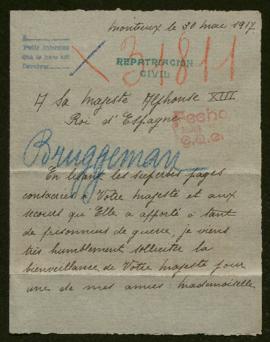 Monteux le 30 mai 1917
31811
REPATRIACION
CIVIL
A Sa Majesté Alphonse XIII
Roi d'Espagne
Fecho
Bruggeman
En lisant les superbes pages
consacrées à Votre Majesté et aux
secours qu'Elle a apporté à tant
de prisonniers de guerre, je viens
très humblement solliciter la
bienveillance de Votre Majesté pour
une de mes amies : Mademoiselle